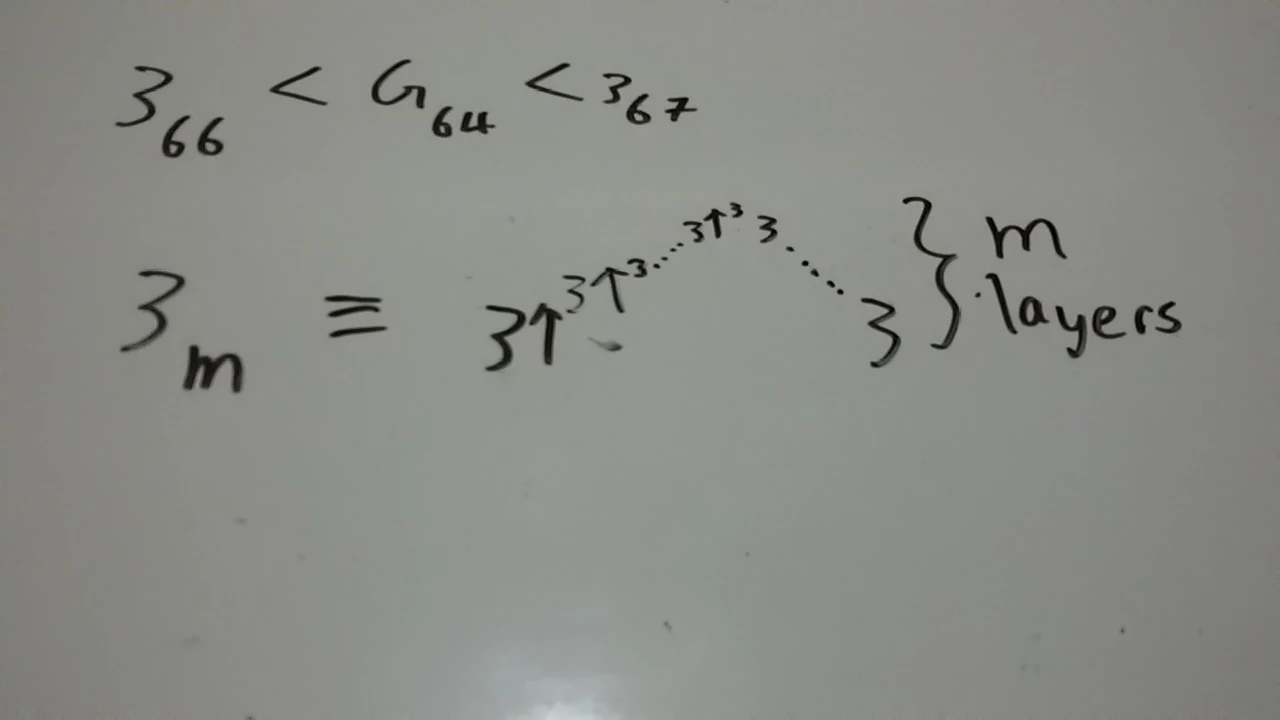 3₆₆ < G₆₄ < 3₆₇
3ₘ ≡ 3↑^3↑^3...3↑^3 3...3 } m layers